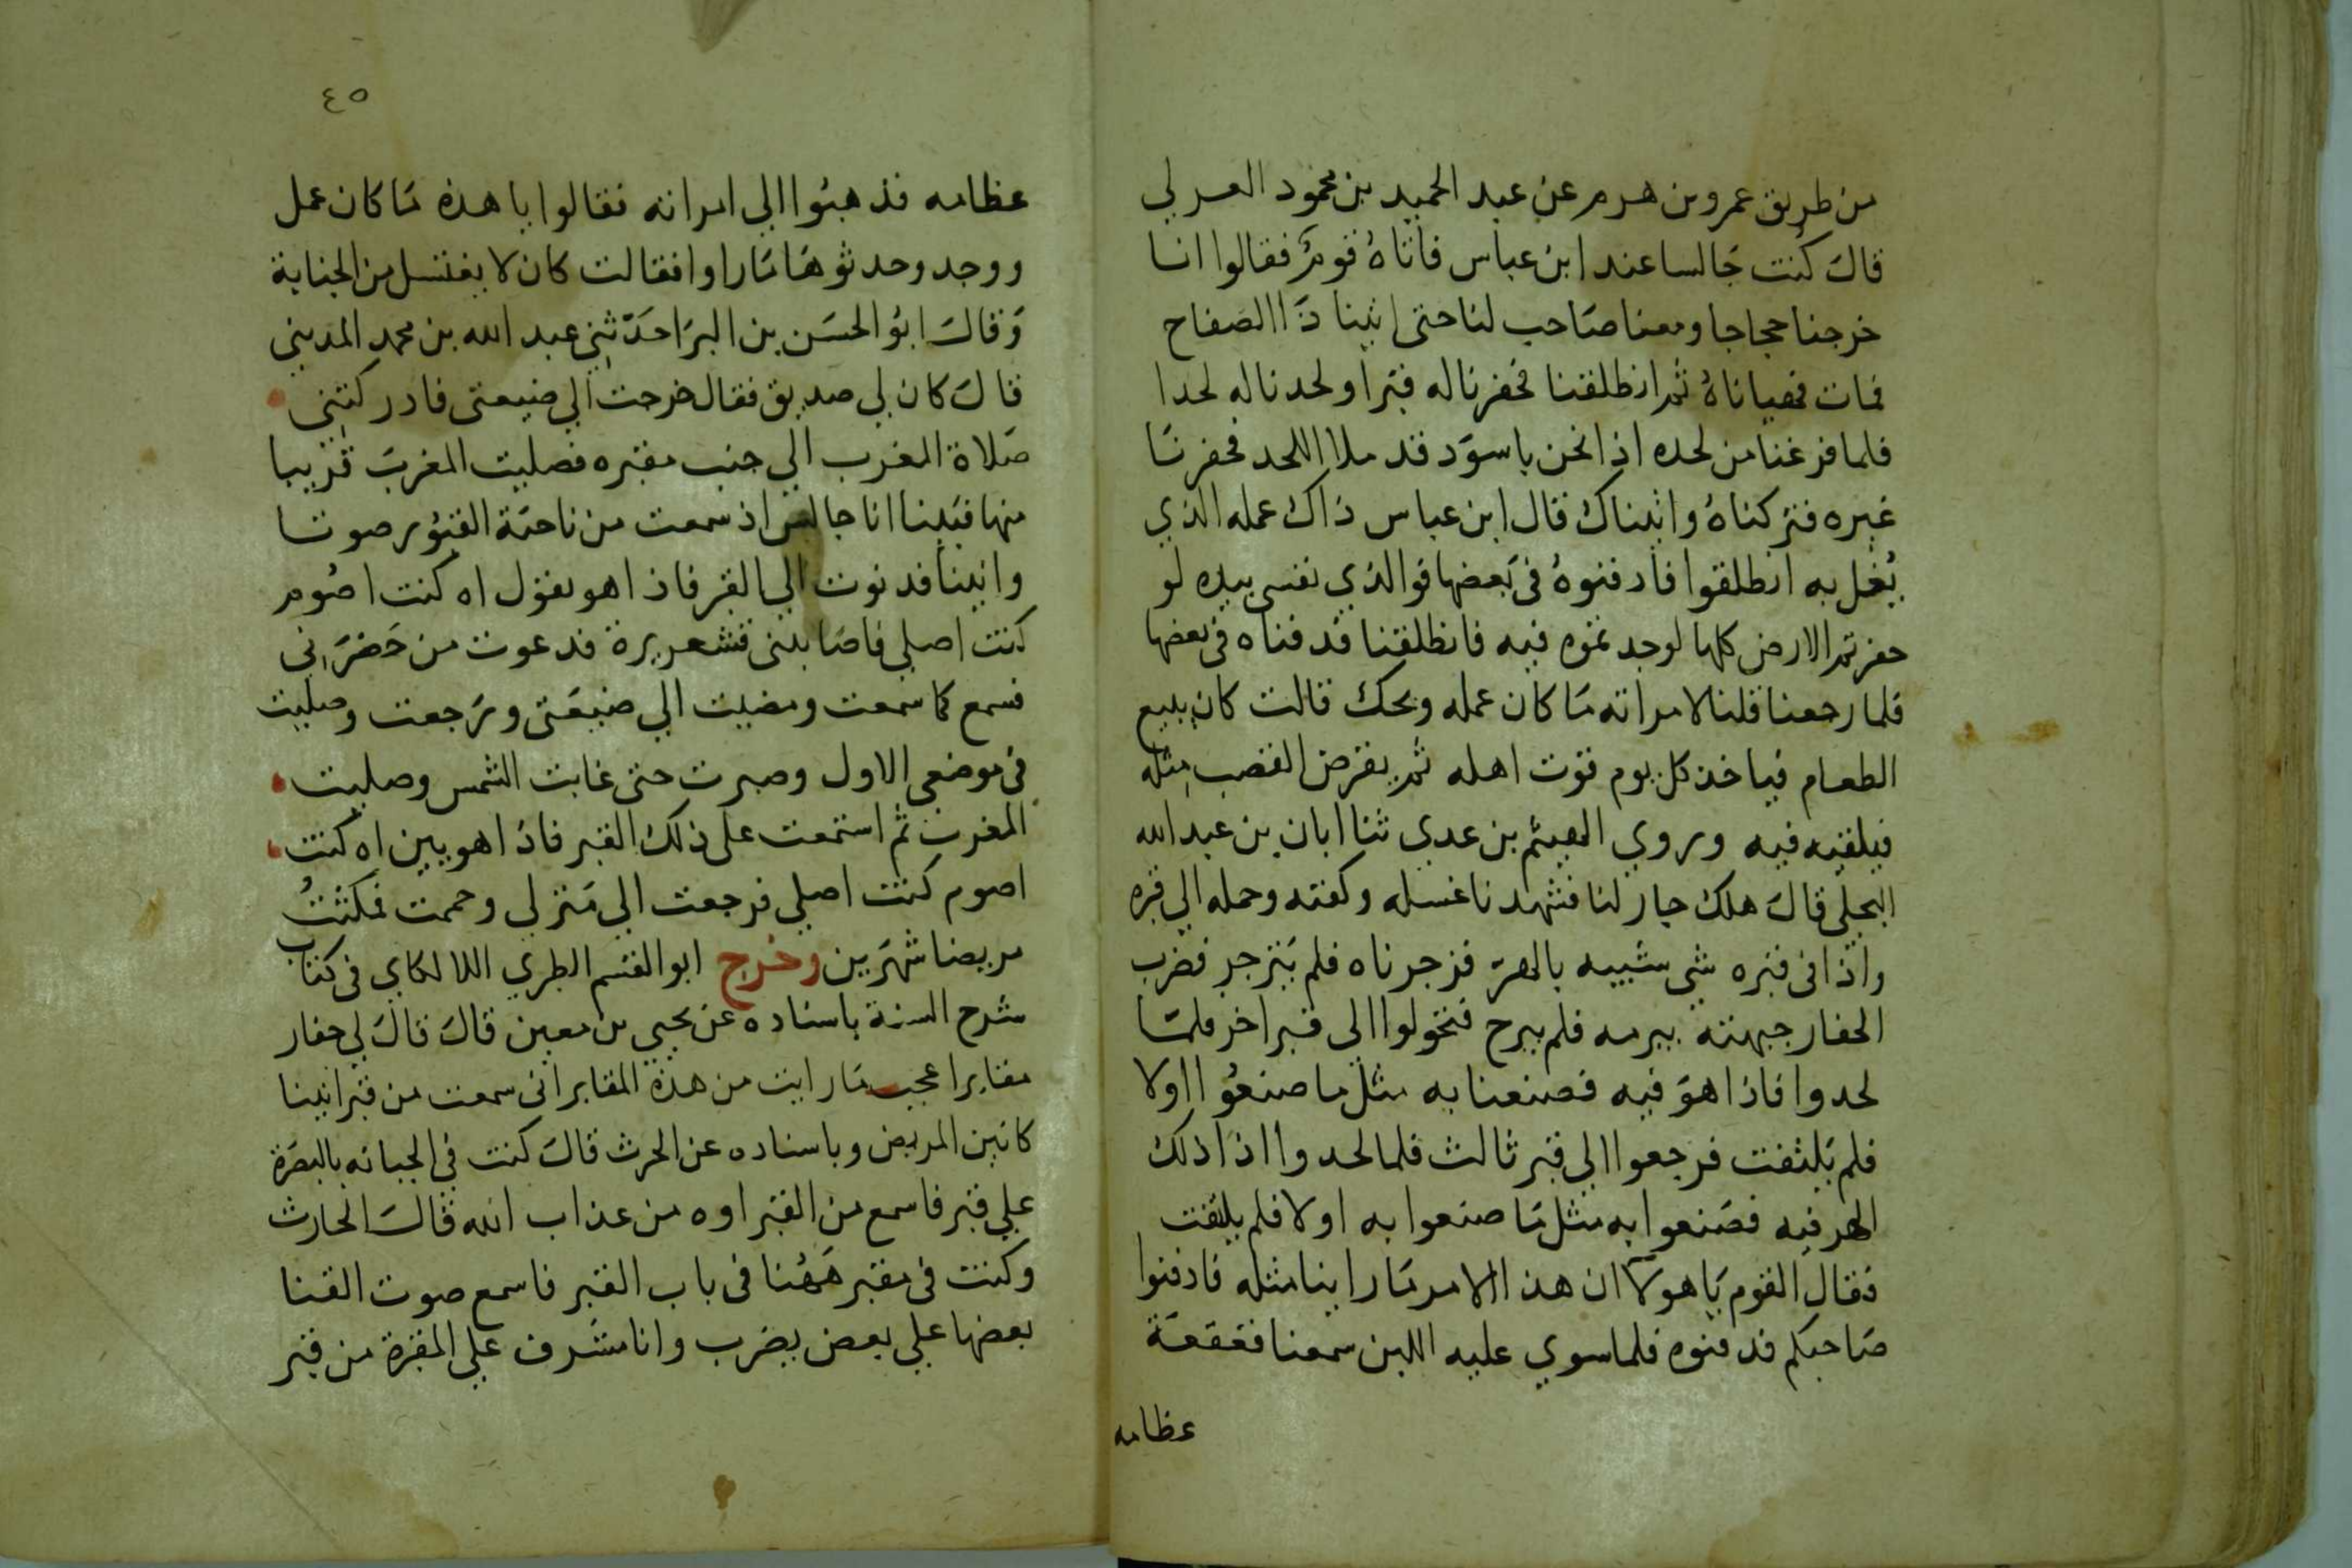 من طريق عمرو بن هرم عن عبد الحميد بن محمود العرلي
قال كنت جالسا عند ابن عباس فاتاه قوم فقالوا انا
خرجنا حجاجا ومعنا صاحب لنا حتى اتينا ذا الصفاح
فمات فهياناه ثم انطلقنا فحفرنا له قبرا ولحدنا له لحدا
فلما فرغنا من لحده اذا نحن باسود قد ملا اللحد فحفرنا
غيره فتركناه واتيناك قال ابن عباس ذاك عمله الذي
يُغل به انطلقوا فادفنوهُ في بعضها فوالذي نفسي بيده لو
حفرتم الارض كلها لوجدتموه فيه فانطلقنا فدفناه في بعضها
فلما رجعنا قلنا لامراته ما كان عمله ويحك قالت كان يبيع
الطعام فياخذ كل يوم قوت اهله ثم يقرض القصب مثله
فيلقيه فيه وروي الهيثم بن عدي ثنا ابان بن عبد الله
البجلي قال هلك جار لنا فشهدنا غسله وكفنه وحمله الي قبره
واذا في قبره شي شبيه بالهر فزجرناه فلم ينزجر فضرب
الحفار جبهته ببرمه فلم يبرح فتحولوا الى قبر اخر فلما
لحدوا فاذا هو فيه فصنعنا به مثل ما صنعوا اولا
فلم يلتفت فرجعوا الي قبر ثالث فلما لحدوا اذا ذلك
الهر فيه فصنعوا به مثل ما صنعوا به اولا فلم يلتفت
فقال القوم يا هولآ ان هذا الامر ما راينا مثله فادفنوا
صاحبكم فدفنوه فلما سوي عليه اللبن سمعنا قعقعة
عظامه
٤٥
عظامه فذهبوا الي امراته فقالوا يا هذه ما كان عمل
زوجد وحدثوها ما راوا فقالت كان لا يغتسل من الجنابة
وقال ابو الحسن بن البرا حدثني عبد الله بن محمد المديني
قال كان لي صديق فقال خرجت الي ضيعتي فادركتني
صلاة المغرب الي جنب مقبره فصليت المغرب قريبا
منها فبينا انا جالس اذ سمعت من ناحية القبور صوتا
وانينا فدنوت الي القبر فاذا هو يقول اه كنت اصوم
كنت اصلي فاصابني قشعريرة فدعوت من حضرني
فسمع كما سمعت ومضيت الي ضيعتي ورجعت وصليت
في موضعي الاول وصبرت حتى غابت الشمس وصليت
المغرب ثم استمعت على ذلك القبر فاذا هو يين اه كنت
اصوم كنت اصلي فرجعت الي منزلي وحممت فمكثتُ
مريضا شهرين وخرج ابو القسم الطبري اللالكاي في كتاب
شرح السنة باسناده عن يحيى بن معين قال قال لي حفار
مقابر اعجب ما رايت من هذه المقابر اني سمعت من قبر انينا
كانين المريض وباسناده عن الحرث قال كنت في الجبانه بالبصرة
علي قبر فاسمع من القبر اوه من عذاب الله قال الحارث
وكنت في مقبر ههنا في باب القبر فاسمع صوت القنا
بعضها علي بعض يضرب وانا مشرف علي المقبرة من قبر